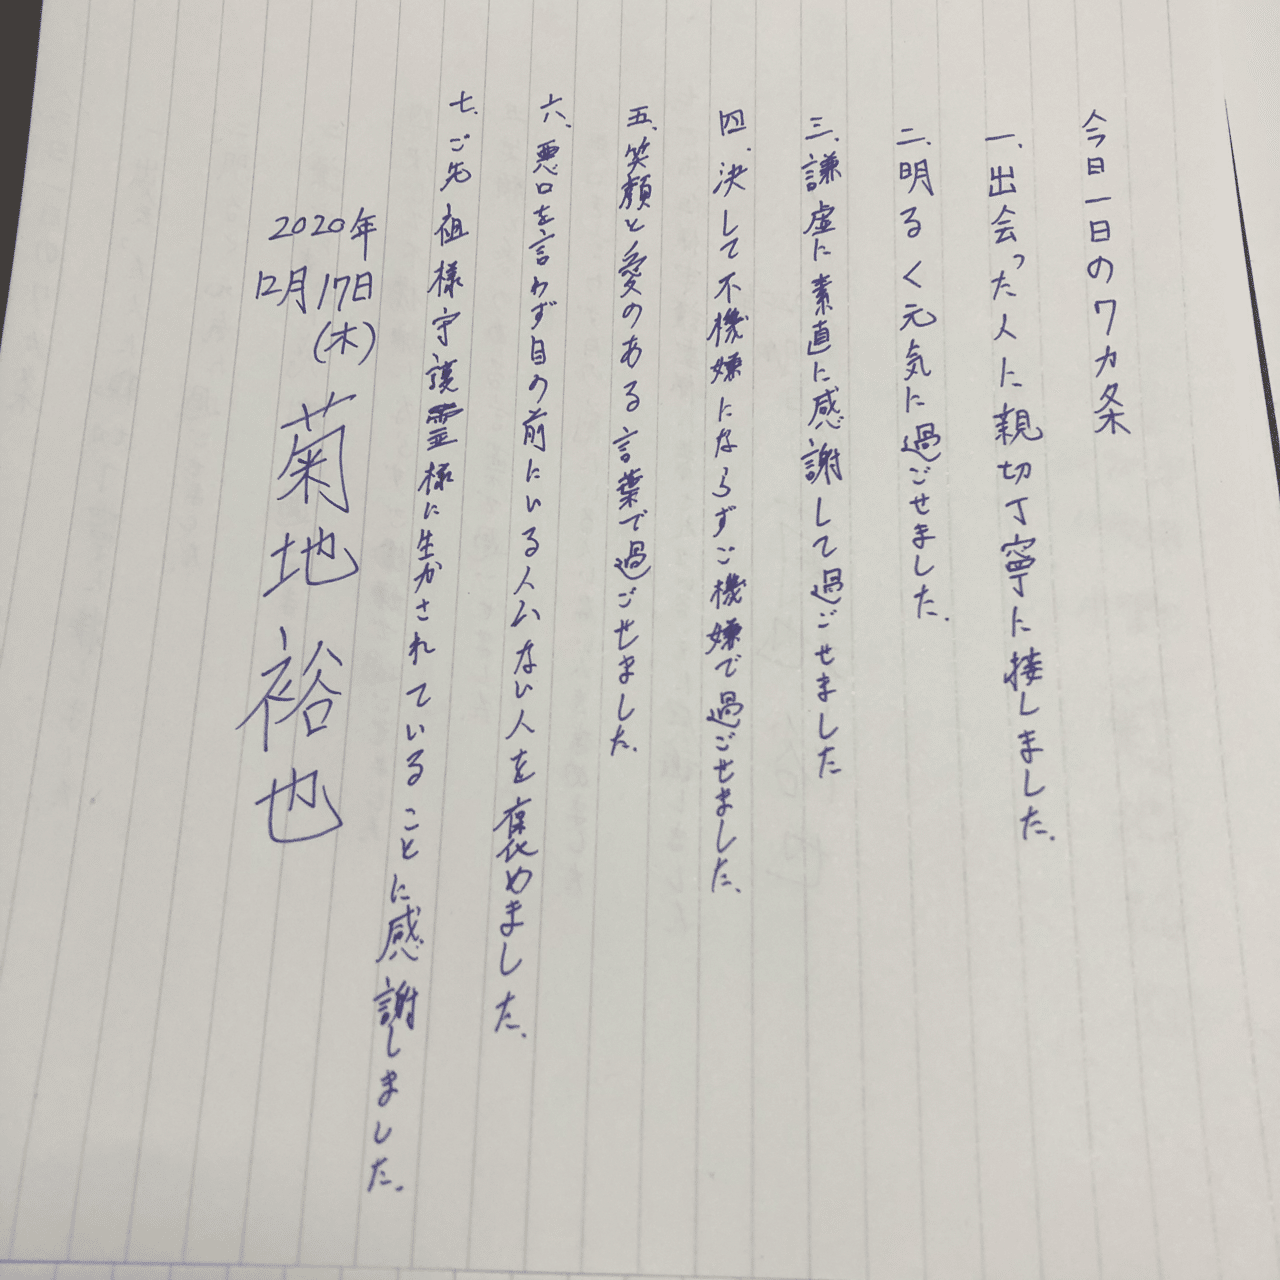 今日一日の7カ条
一、出会った人に親切丁寧に接しました.
二、明るく元気に過ごせました.
三、謙虚に素直に感謝して過ごせました
四、決して不機嫌にならずご機嫌で過ごせました.
五、笑顔と愛のある言葉で過ごせました.
六、悪口を言わず目の前にいる人ムない人を褒めました.
七、ご先祖様守護霊様に生かされていることに感謝しました.
2020年
12月17日
(木)
菊地裕也